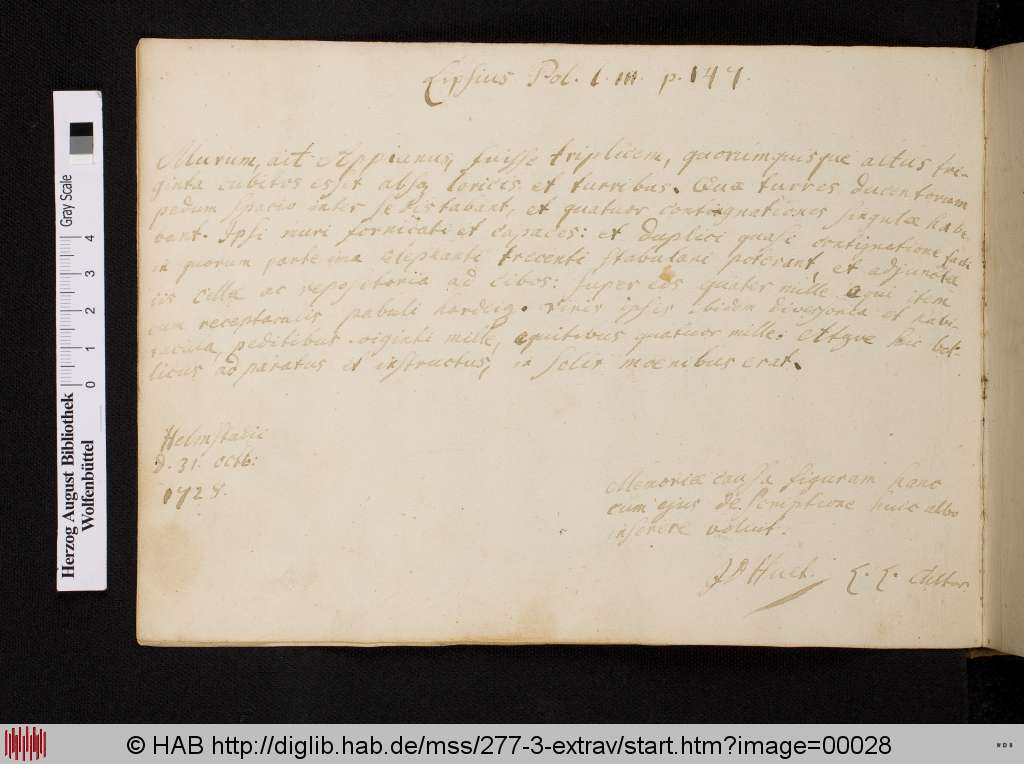 Lipsius Pol. l. III. p. 147.
Murum, ait Appianus, fuisse triplicem, quorum quisque altus tri-
ginta cubitos esset absq loricis et turribus. Quæ turres ducentorum
pedum spacio inter se distabant, et quatuor contignationes singulæ habe-
bant. Ipsi muri fornicati et capaces: et duplici quasi contignatione facti
in quorum parte ima Elephanti trecenti stabulari poterant, et adjunctæ
iis cellæ ac repositoria ad cibos: super eos quater mille equi item
cum receptaculis pabuli hordeiq. viris ipsis ibidem diversoria et habi-
tacula, peditibus viginti mille, equitibus quatuor mille: Atque hic bel-
licus apparatus et instructus, in solis moenibus erat.
Helmstadii
d. 31. octb:
1728.
Memoriæ caussa figuram hanc
cum ejus descriptione huic albo
inserere voluit.
Huct. L. L. Cultor.
Herzog August Bibliothek
Wolfenbüttel
Gray Scale
0 1 2 3 4
© HAB http://diglib.hab.de/mss/277-3-extrav/start.htm?image=00028